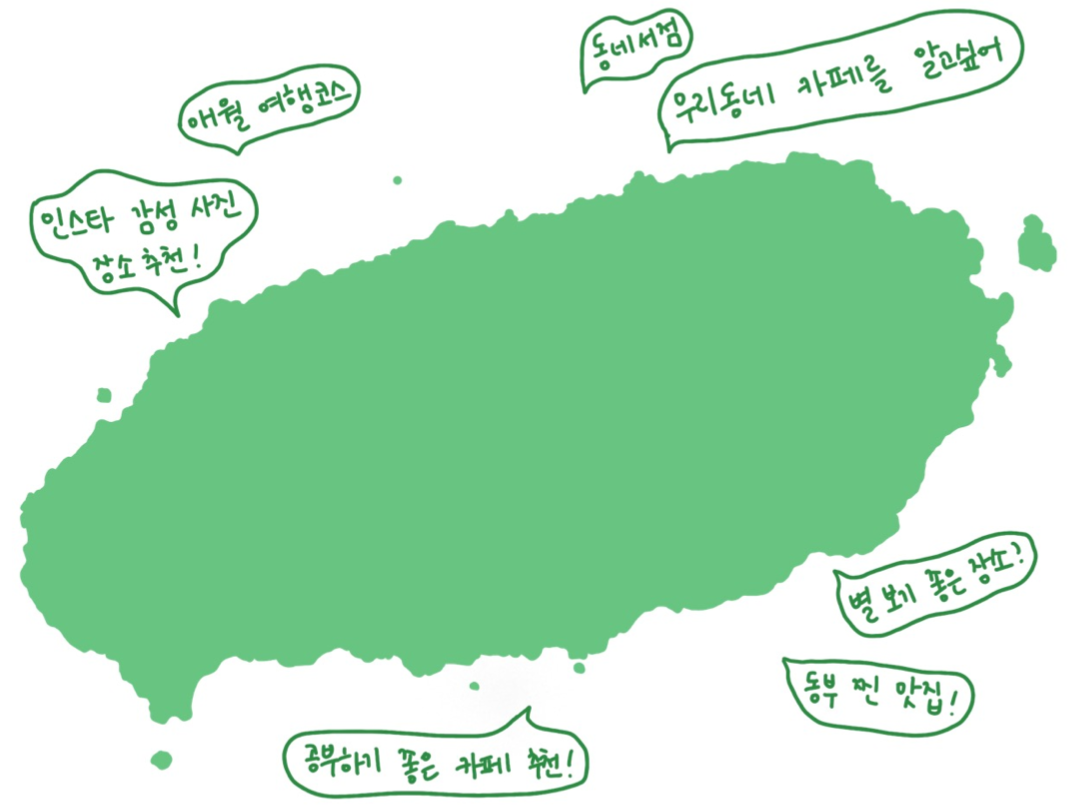 동네서점
우리동네 카페를 알고싶어
애월 여행코스
인스타 감성 사진
장소추천!
별 보기 좋은 장소?
동부 찐 맛집!
공부하기 좋은 카페 추천!